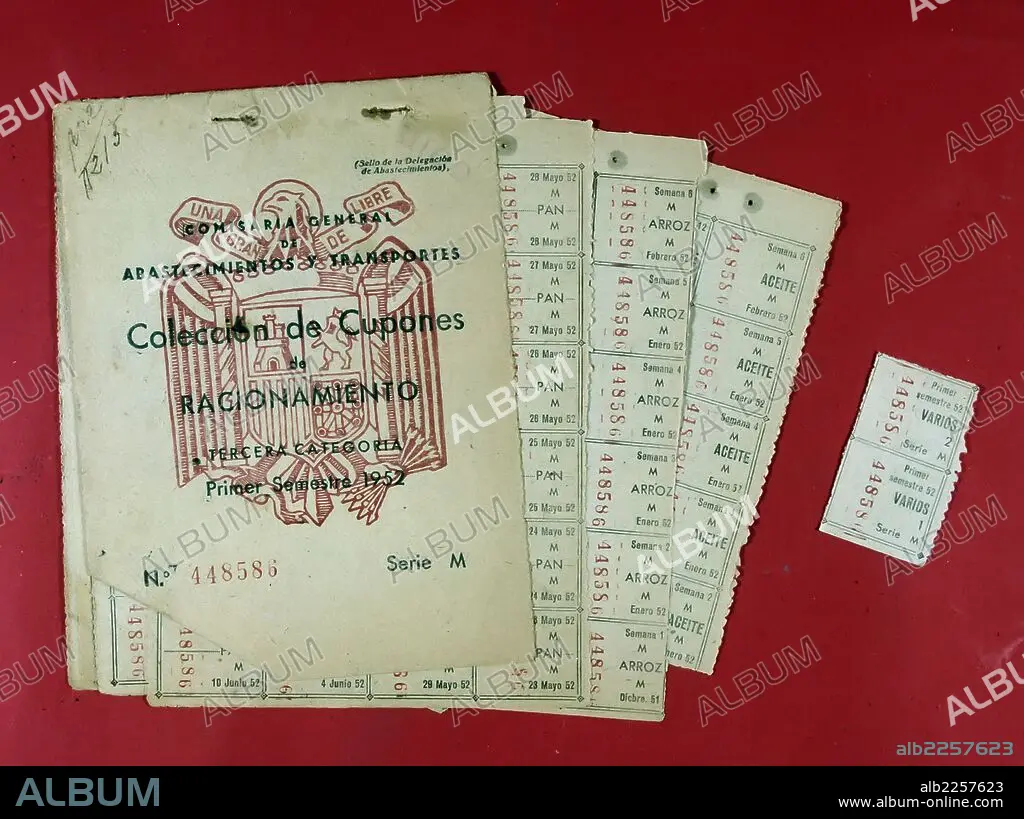 (Sello de la Delegación
de Abastecimientos),
UNA
LIBRE
DE
COMISARIA GENERAL
DE
ABASTECIMIENTOS Y TRANSPORTES
Colección de Cupones
de
RACIONAMIENTO
TERCERA CATEGORIA
Primer Semestre 1952
N.º 448586
Serie M
448586
448586
M
10 Junio 52
4 Junio 52
29 Mayo 52
23 Mayo 52
28 Mayo 52
M
PAN
M
28 Mayo 52
27 Mayo 52
M
PAN
M
27 Mayo 52
26 Mayo 52
M
PAN
M
26 Mayo 52
25 Mayo 52
M
PAN
M
25 Mayo 52
24 Mayo 52
M
PAN
M
24 Mayo 52
Mayo 52
M
PAN
M
23 Mayo 52
448586
448586
Semana 6
M
ARROZ
M
Febrero 52
448586
Semana 5
M
ARROZ
M
Enero 52
448586
Semana 4
M
ARROZ
M
Enero 52
448586
Semana 3
M
ARROZ
M
Enero 52
448586
Semana 2
M
ARROZ
M
Enero 52
448586
Semana 1
M
ARROZ
M
Dicbre. 51
448586
Semana 6
M
ACEITE
M
Febrero 52
448586
Semana 5
M
ACEITE
M
Enero 52
448586
Semana 4
M
ACEITE
M
Enero 52
Semana
M
ACEITE
M
Enero 52
Semana 2
M
ACEITE
M
448586
Primer
semestre 52
VARIOS
2
Serie M
448586
Primer
semestre 52
VARIOS
1
Serie M
448586
ALBUM
alb2257623
ALBUM
alb2257623
www.album-online.com